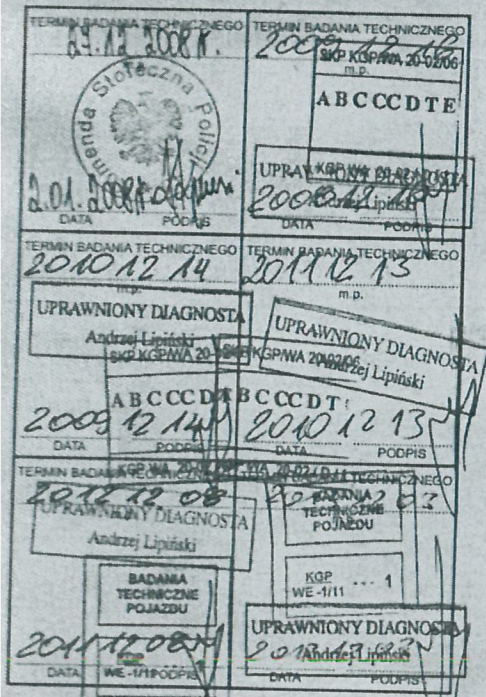 TERMIN BADANIA TECHNICZNEGO
29.12.2008r.
Komenda Stołeczna Policji
2.01.2008r.
DATA PODPIS
TERMIN BADANIA TECHNICZNEGO
SKP KGP/WA 20-02/06
m.p.
ABCCCDTE
UPRAWNIONY DIAGNOSTA
Lipiński
DATA PODPIS
TERMIN BADANIA TECHNICZNEGO
2010 12 14
m.p.
UPRAWNIONY DIAGNOSTA
Andrzej Lipiński
SKP KGP/WA 20-
ABCCCDT
2009 12 14
DATA PODPIS
TERMIN BADANIA TECHNICZNEGO
2011 12 13
m.p.
UPRAWNIONY DIAGNOSTA
Andrzej Lipiński
KGP/WA 20-02/06
BCCCDT
2010 12 13
DATA PODPIS
TERMIN BADANIA TECHNICZNEGO
2012 12 08
UPRAWNIONY DIAGNOSTA
Andrzej Lipiński
BADANIA
TECHNICZNE
POJAZDU
2011 12 08
DATA PODPIS
WE-1/11
TECHNICZNEGO
BADANIA
TECHNICZNE
POJAZDU
KGP
WE-1/11 ... 1
UPRAWNIONY DIAGNOSTA
Andrzej Lipiński
DATA PODPIS